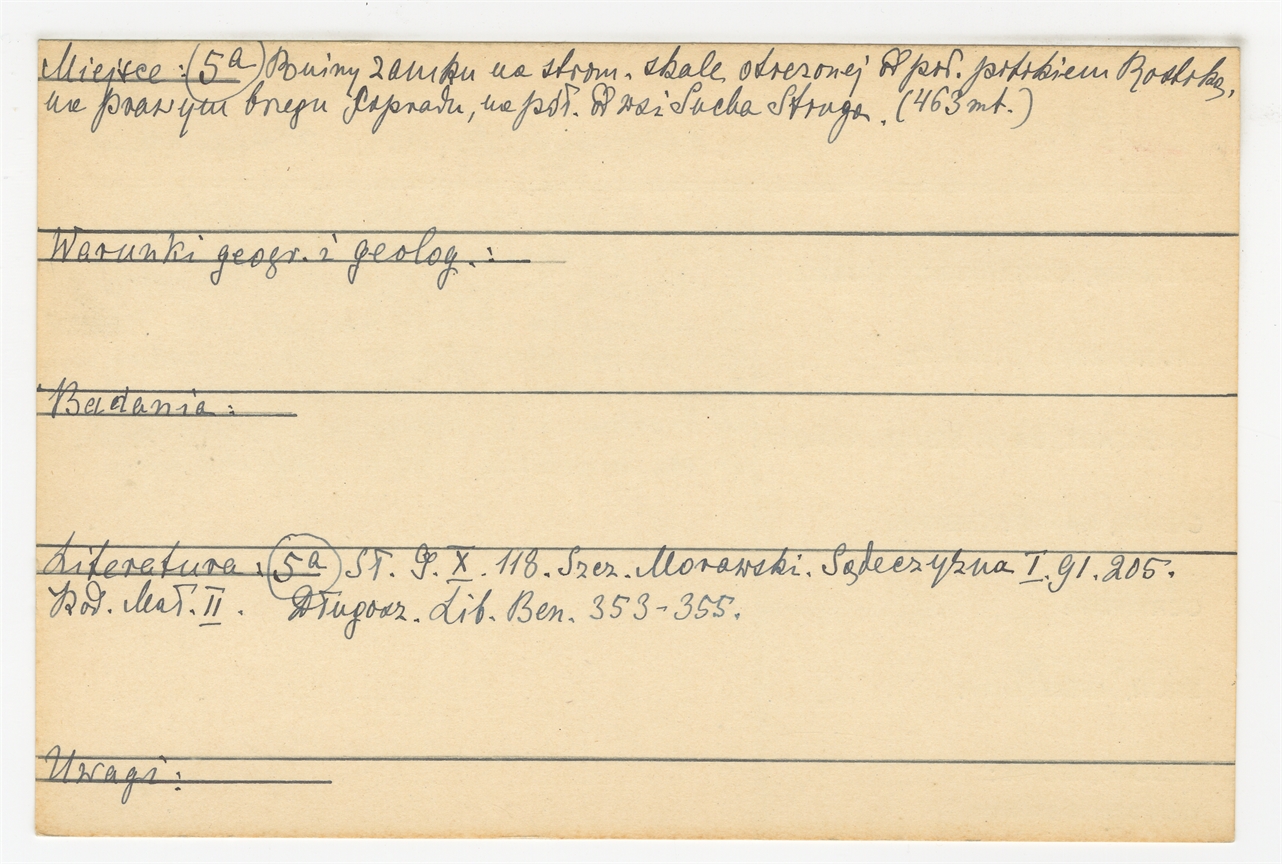 Miejsce : (5a) Ruiny zamku na strom. skale otoczonej od poł. potokiem Roztoką,
na prawym brzegu Popradu, na płł. od wsi Sucha Struga. (463 mt.)
Warunki geogr. i geolog. :
Badania :
Literatura : (5a) Sł. G. X. 118. Szcz. Morawski. Sądeczyzna I. 91. 205.
Kod. Mał. II. Długosz. Lib. Ben. 353-355.
Uwagi :